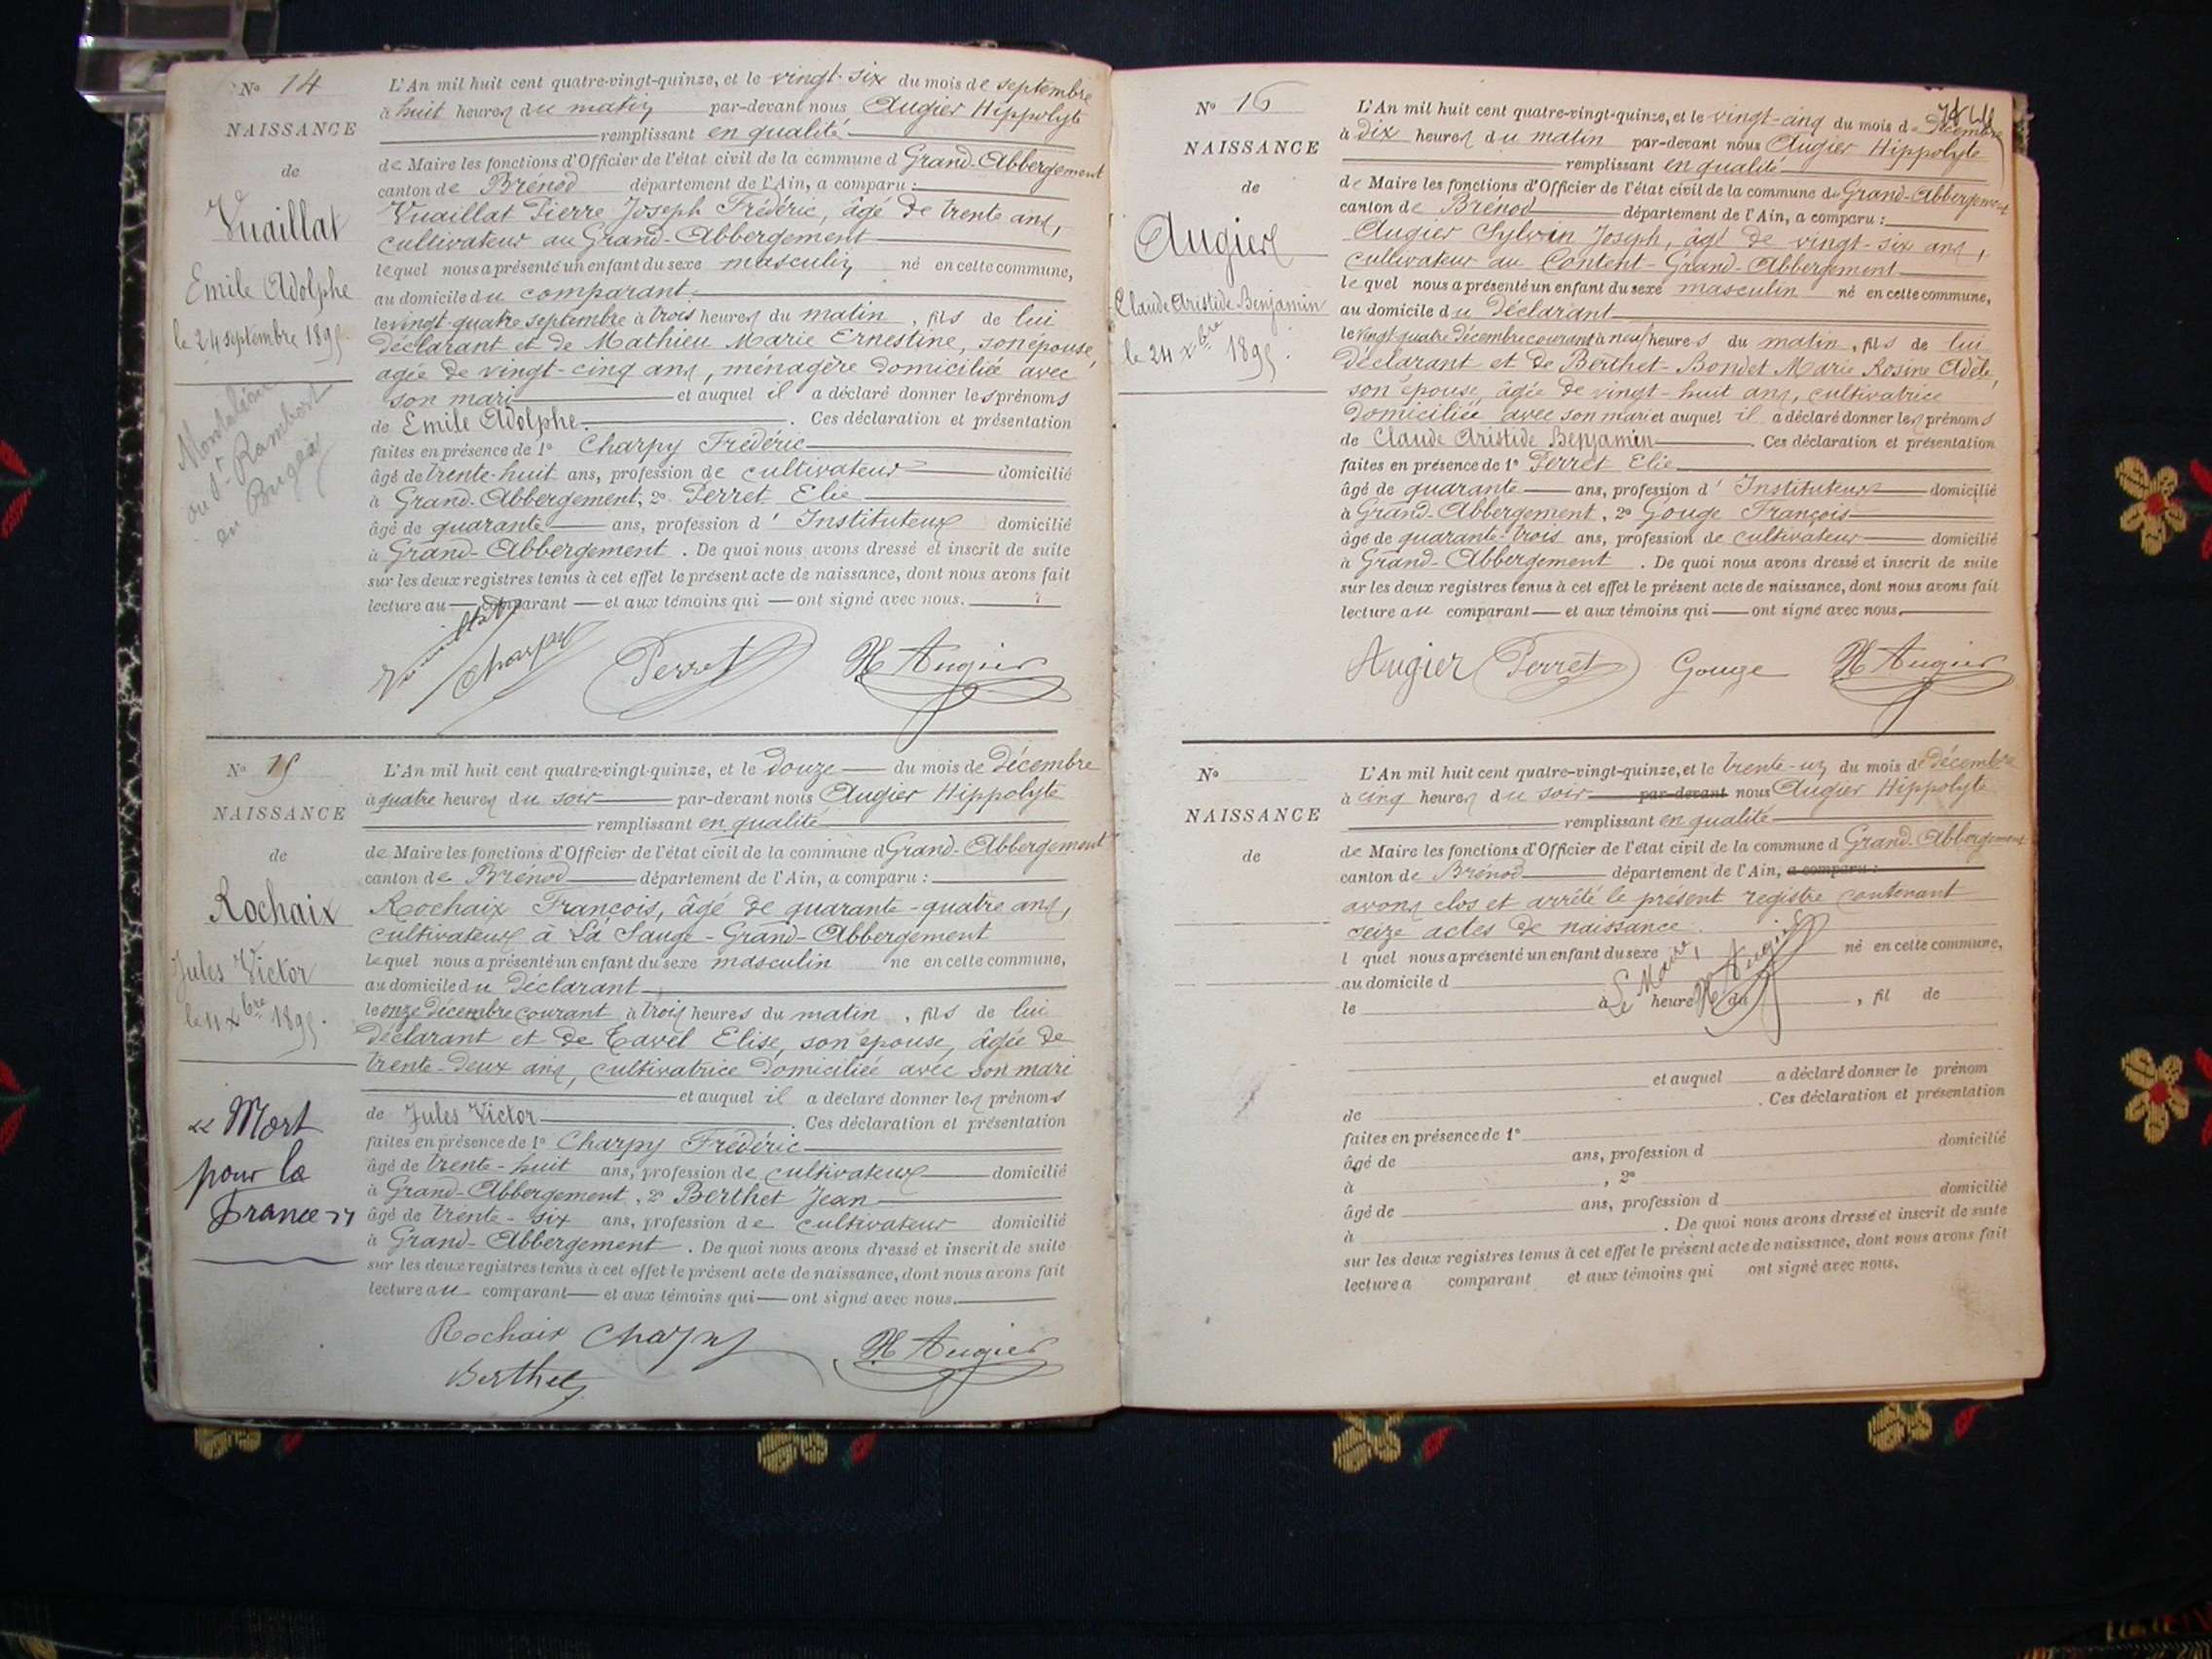 No 14
NAISSANCE
de
Vuaillat
Emile Adolphe
le 24 septembre 1895.
ou St Rambert
en Bugey
L'An mil huit cent quatre-vingt-quinze, et le vingt-six du mois de septembre
à huit heures du matin par-devant nous Augier Hippolyte
remplissant en qualité
de Maire les fonctions d'Officier de l'état civil de la commune d Grand-Abbergement
canton de Brénod département de l'Ain, a comparu :
Vuaillat Pierre Joseph Frédéric, âgé de trente ans,
cultivateur au Grand-Abbergement
lequel nous a présenté un enfant du sexe masculin né en cette commune,
au domicile du comparant.
le vingt-quatre septembre à trois heures du matin, fils de lui
déclarant et de Mathieu Marie Ernestine, son épouse,
âgée de vingt-cinq ans, ménagère domiciliée avec
son mari et auquel il a déclaré donner les prénoms
de Emile Adolphe. Ces déclaration et présentation
faites en présence de 1o Charpy Frédéric
âgé de trente-huit ans, profession de cultivateur domicilié
à Grand-Abbergement, 2o Perret Elie
âgé de quarante ans, profession d' Instituteur domicilié
à Grand-Abbergement. De quoi nous avons dressé et inscrit de suite
sur les deux registres tenus à cet effet le présent acte de naissance, dont nous avons fait
lecture au comparant et aux témoins qui ont signé avec nous.
Vuaillat Charpy Perret H Augier
No 15
NAISSANCE
de
Rochaix
Jules Victor
le 11 Xbre 1895.
« Mort
pour la
France »
L'An mil huit cent quatre-vingt-quinze, et le douze du mois de Décembre
à quatre heures du soir par-devant nous Augier Hippolyte
remplissant en qualité
de Maire les fonctions d'Officier de l'état civil de la commune d Grand-Abbergement
canton de Brénod département de l'Ain, a comparu :
Rochaix François, âgé de quarante-quatre ans,
cultivateur à La Sauge-Grand-Abbergement
lequel nous a présenté un enfant du sexe masculin né en cette commune,
au domicile du déclarant
le onze décembre courant à trois heures du matin, fils de lui
déclarant et de Tavel Elise, son épouse, âgée de
trente-deux ans, cultivatrice domiciliée avec son mari
et auquel il a déclaré donner les prénoms
de Jules Victor. Ces déclaration et présentation
faites en présence de 1o Charpy Frédéric
âgé de trente-huit ans, profession de cultivateur domicilié
à Grand-Abbergement, 2o Berthet Jean
âgé de trente-six ans, profession de cultivateur domicilié
à Grand-Abbergement. De quoi nous avons dressé et inscrit de suite
sur les deux registres tenus à cet effet le présent acte de naissance, dont nous avons fait
lecture au comparant et aux témoins qui ont signé avec nous.
Rochaix Charpy H Augier
Berthet
No 16
NAISSANCE
de
Augier
Claude Aristide Benjamin
le 24 Xbre 1895.
L'An mil huit cent quatre-vingt-quinze, et le vingt-cinq du mois de Décembre
à dix heures du matin par-devant nous Augier Hippolyte
remplissant en qualité
de Maire les fonctions d'Officier de l'état civil de la commune du Grand-Abbergement
canton de Brénod département de l'Ain, a comparu :
Augier Sylvain Joseph, âgé de vingt-six ans,
cultivateur au Content-Grand-Abbergement
lequel nous a présenté un enfant du sexe masculin né en cette commune,
au domicile du déclarant
le vingt-quatre décembre courant à neuf heures du matin, fils de lui
déclarant et de Berthet-Bondet Marie Rosine Adèle,
son épouse, âgée de vingt-huit ans, cultivatrice
domiciliée avec son mari et auquel il a déclaré donner les prénoms
de Claude Aristide Benjamin. Ces déclaration et présentation
faites en présence de 1o Perret Elie
âgé de quarante ans, profession d' Instituteur domicilié
à Grand-Abbergement, 2o Gouge François
âgé de quarante-trois ans, profession de cultivateur domicilié
à Grand-Abbergement. De quoi nous avons dressé et inscrit de suite
sur les deux registres tenus à cet effet le présent acte de naissance, dont nous avons fait
lecture au comparant et aux témoins qui ont signé avec nous.
Augier Perret Gouge H Augier
No
NAISSANCE
de
L'An mil huit cent quatre-vingt-quinze, et le trente-un du mois de Décembre
à cinq heures du soir par-devant nous Augier Hippolyte
remplissant en qualité
de Maire les fonctions d'Officier de l'état civil de la commune d Grand-Abbergement
canton de Brénod département de l'Ain, a comparu :
avons clos et arrêté le présent registre contenant
seize actes de naissance.
l quel nous a présenté un enfant du sexe né en cette commune,
au domicile d
Le Maire,
H Augier
le à heure du , fil de
et auquel a déclaré donner le prénom
de . Ces déclaration et présentation
faites en présence de 1o
âgé de ans, profession d domicilié
à , 2o
âgé de ans, profession d domicilié
à . De quoi nous avons dressé et inscrit de suite
sur les deux registres tenus à cet effet le présent acte de naissance, dont nous avons fait
lecture a comparant et aux témoins qui ont signé avec nous.